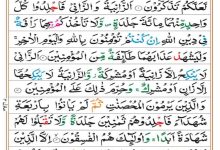 لَّعَلَّكُمْ تَذَكَّرُوْنَ ۝ اَلزَّانِيَةُ وَالزَّانِيْ فَاجْلِدُوْا كُلَّ
وَاحِدٍ مِّنْهُمَا مِائَةَ جَلْدَةٍ ۪ وَّلَا تَاْخُذْكُمْ بِهِمَا رَاْفَةٌ
فِيْ دِيْنِ اللّٰهِ اِنْ كُنْتُمْ تُؤْمِنُوْنَ بِاللّٰهِ وَالْيَوْمِ الْاٰخِرِ ۚ
وَلْيَشْهَدْ عَذَابَهُمَا طَآئِفَةٌ مِّنَ الْمُؤْمِنِيْنَ ۝ اَلزَّانِيْ لَا
يَنْكِحُ اِلَّا زَانِيَةً اَوْ مُشْرِكَةً ۫ وَّالزَّانِيَةُ لَا يَنْكِحُهَآ
اِلَّا زَانٍ اَوْ مُشْرِكٌ ۚ وَحُرِّمَ ذٰلِكَ عَلَى الْمُؤْمِنِيْنَ ۝
وَالَّذِيْنَ يَرْمُوْنَ الْمُحْصَنٰتِ ثُمَّ لَمْ يَاْتُوْا بِاَرْبَعَةِ
شُهَدَآءَ فَاجْلِدُوْهُمْ ثَمٰنِيْنَ جَلْدَةً وَّلَا تَقْبَلُوْا لَهُمْ
شَهَادَةً اَبَدًا ۚ وَاُولٰٓئِكَ هُمُ الْفٰسِقُوْنَ ۝ اِلَّا الَّذِيْنَ